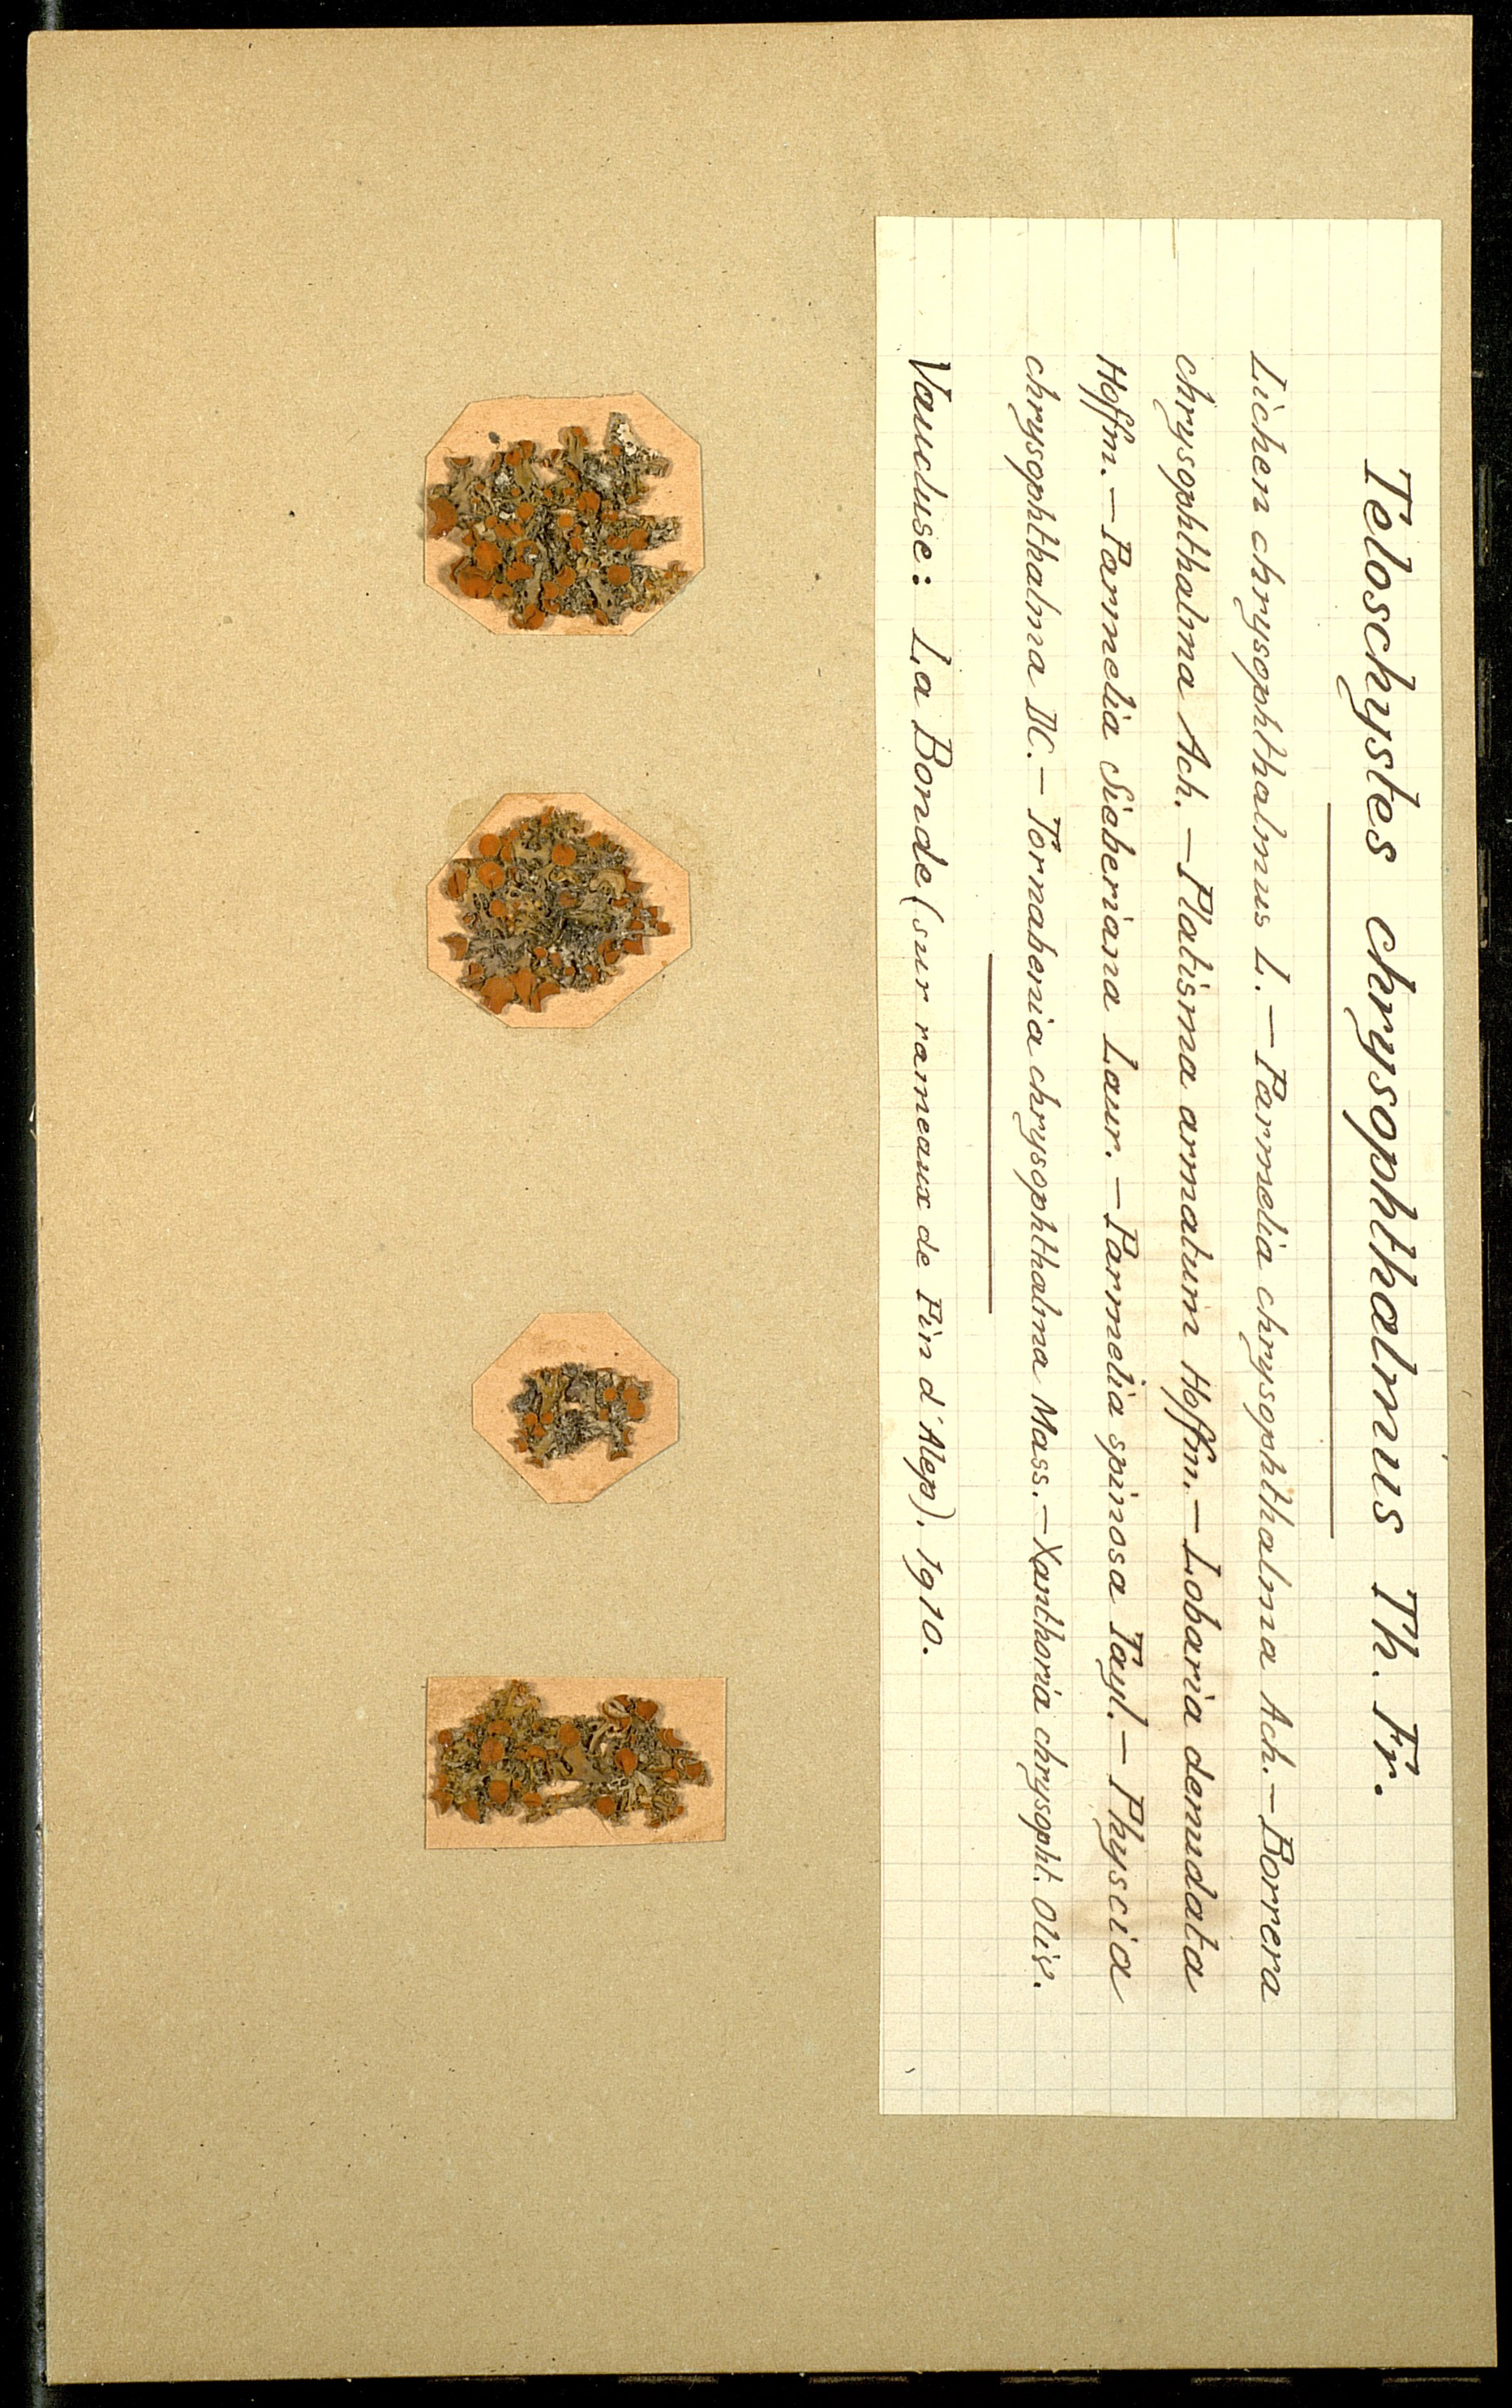 Teloschystes chrysophthalmus Th. Fr.
Lichen chrysophthalmus L. — Parmelia chrysophthalma Ach. — Borrera
chrysophthalma Ach. — Platisma armatum Hoffm. — Lobaria denudata
Hoffm. — Parmelia Sieberiana Laur. — Parmelia spinosa Tayl. — Physcia
chrysophthalma DC. — Tornabenia chrysophthalma Mass. — Xanthoria chrysopht. Oliv.
Vaucluse: La Bonde (sur rameaux de Pin d'Alep). 1910.